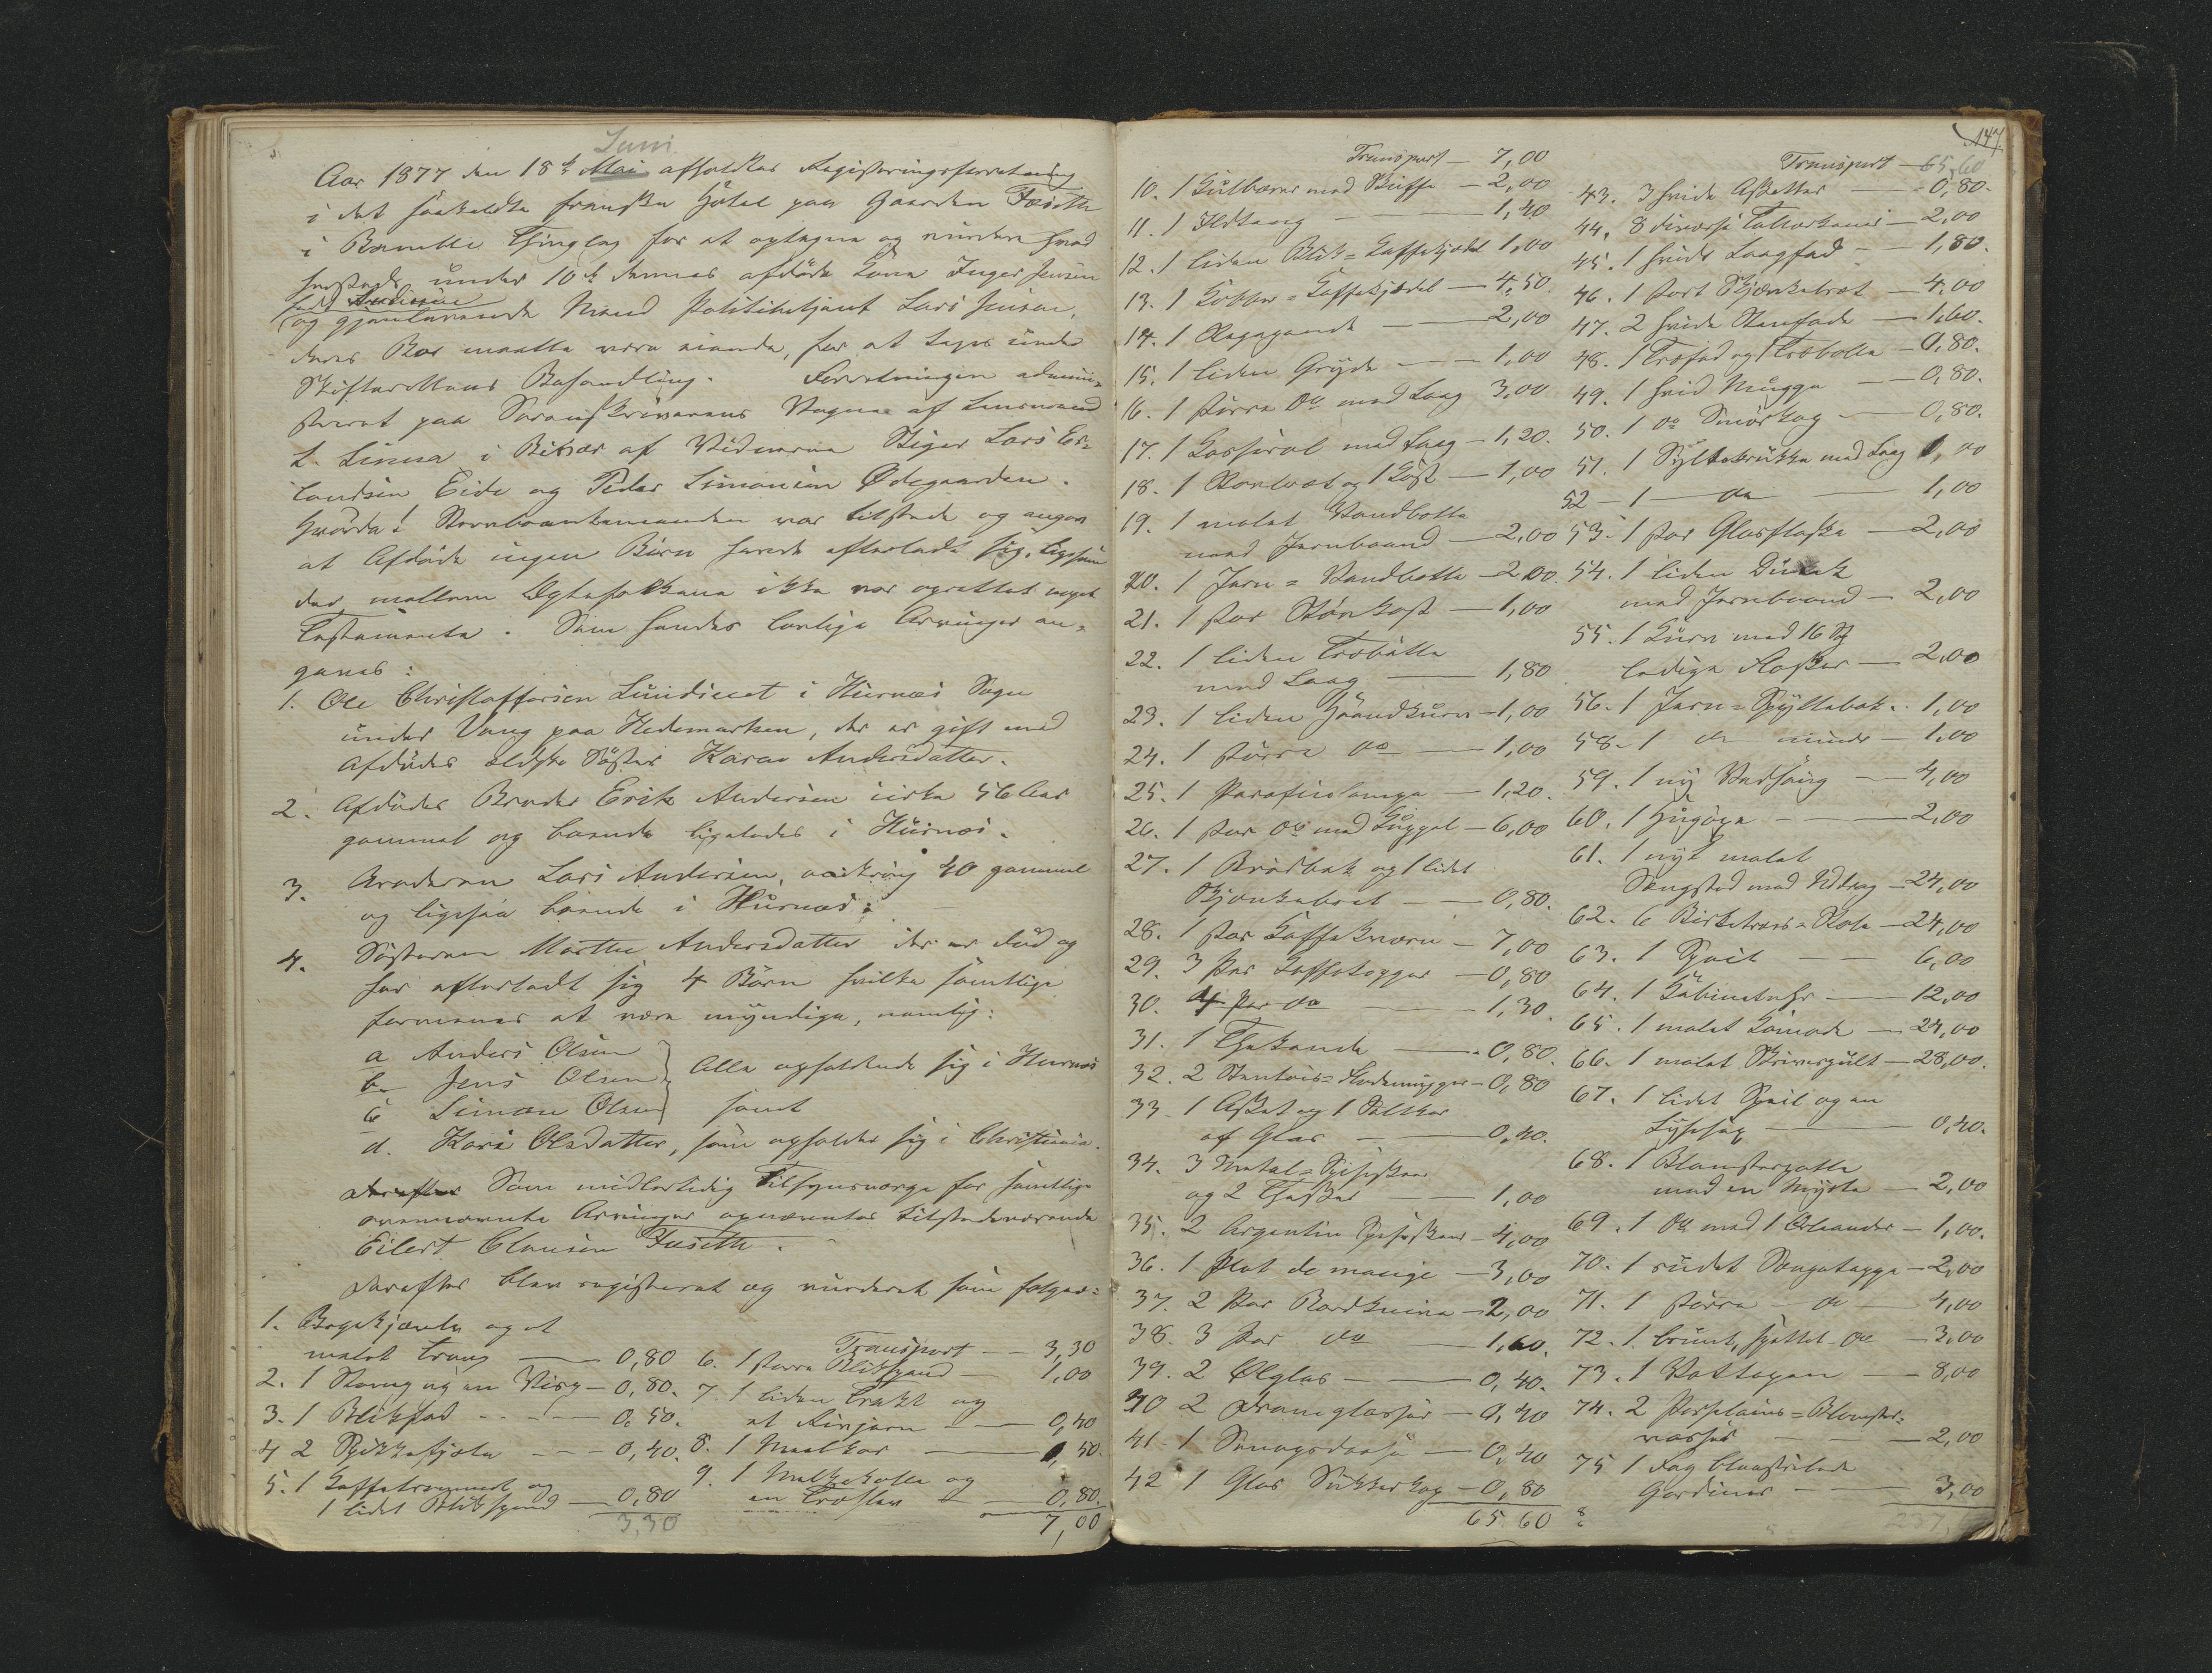 Juni
Aar 1877 den 18de Mai afholdtes Registreringsforretning
i det saakaldte franske Hôtel paa Gaarden Fæseth
i Bamble Thinglag for at optegne og vurdere hvad
hersteds under 10de dennes afdöde Kone Inger Jensen
født Andersen
og gjenlevende Mand Politibetjent Lars Jensen,
deres Bo maatte være eiende, for at tages under
Skifterettens Behandling. Forretningen admini-
streret paa Sorenskriverens Vegne af Lensmand
L. Linna i Bisvær af Vidnerne Stiger Lars Er-
landsen Eide og Peder Simonsen Ødegaarden.
Hvorda! Stervboenkemanden var tilstede og angav
at Afdöde ingen Börn havde efterladt sig, ligesom
der mellem Ægtefolkene ikke var oprettet noget
Testamente. Som hendes lovlige Arvinger an-
gaves:
1. Ole Christoffersen Lundseet i Hurnæs Sogn
under Vang paa Hedemarken, der er gift med
Afdødes ældste Söster Karen Andersdatter.
2. Afdödes Broder Erik Andersen cirka 56 Aar
gammel og boende ligeledes i Hurnæs.
3. Broderen Lars Andersen, omkring 40 gammel
og ligesaa boende i Hurnæs;
4. Søsteren Marthe Andersdatter der er död og
har efterladt sig 4 Börn hvilke samtlige
formenes at være myndige, nemlig:
a Anders Olsen
b. Jens Olsen
c Simon Olsen
Alle opholdende sig i Hurnæs
samt
d. Kari Olsdatter, som opholder sig i Christiania.
Derefter Som midlertidig Tilsynsværge for samtlige
ovennævnte Arvinger opnævntes tilstedeværende
Eilert Clausen Fæseth.
Derefter blev registreret og vurderet som følger:
1. og et
malet Traug — 0,80
2. 1 Stamp og en Visp — 0,80.
3. 1 Blikfad — 0,50.
4 2 — 0,40.
5. 1 Kaffebrænder og
1 lidet Blikspand — 0,80
3,30
Transport — 3,30
6. 1 større Blikspand — 1,00
7. 1 liden Trakt og
et Rivjern — 0,40
8. 1 Maalkar — 1,50.
9. 1 Melkekolle og
en Træslev — 0,80.
7,00
147
Transport — 7,00
10. 1 Kulbærer med Skuffe — 2,00
11. 1 Ildtang — 1,40
12. 1 liden Blik-Kaffekjedel 1,00
13. 1 Kobber-Kaffekjedel — 4,50.
14. 1 Bagepande — 2,00
15. 1 liden Gryde — 1,00
16. 1 større do med Laag 3,00
17. 1 Kasserol med Laag — 1,20.
18. 1 og 1 Kost — 1,00
19. 1 malet Vandbøtte
med Jernbaand — 2,00
20. 1 Jern-Vandbøtte — 2,00.
21. 1 Par — 1,00
22. 1 liden Træbøtte
med Laag — 1,80
23. 1 liden Haandkurv — 1,00
24. 1 større do — 1,00
25. 1 Parafinlampe — 1,20.
26. 1 stor do med Kuppel — 6,00
27. 1 Brødbak og 1 lidet
Skjænkebret — 0,80.
28. 1 stor Kaffekværn — 7,00
29. 3 Par Kaffekopper — 0,80
30. 4 Par do — 1,30.
31. 1 Thekande — 0,80.
32. 2 Stentøis-Flødemugger — 0,80
33. 1 Asket og 1 Saltkar
af Glas — 0,40.
34. 3 Metal-Spiseskeer
og 2 Theskeer — 1,00
35. 2 Argentin Spiseskeer — 4,00
36. 1 Plat de menage — 3,00
37. 2 Par Bordknive — 2,00
38. 3 Par do — 1,60.
39. 2 Ølglas — 0,40.
40 2 Dramglasser — 0,40
41. 1 Sennopsdaase — 0,40
42 1 Glas Sukkerkop — 0,80
65 60
Transport — 65,60
43. 3 hvide Asketter — 0,80.
44. 8 diverse Tallerkener — 2,00
45. 1 hvidt Laagfad — 1,80.
46. 1 stort Skjænkebret — 4,00
47. 2 hvide Stenfade — 1,60.
48. 1 Træfad og 1 Træbolle — 0,80.
49. 1 hvid Mugge — 0,80.
50. 1 do Smørkop — 0,80.
51. 1 Syltekrukke med Laag 1,00
52 — 1 — do — 1,00
53. 1 stor Glasflaske — 2,00
54. 1 liden Dunk
med Jernbaand — 2,00
55. 1 Kurv med 16 Stk
ledige Flasker — 2,00
56. 1 Jern-Spyttebak. 1,00
58. 1 do mindre — 1,00
59. 1 ny Vedsaug — 4,00
60. 1 Hugöxe — 2,00
61. 1 nyt malet
Sengsted med Uddrag — 24,00
62. 6 Birketræs-Stole — 24,00
63. 1 Speil — 6,00
64. 1 Kabinetuhr — 12,00
65. 1 malet Komode — 24,00
66. 1 malet Skriverpult — 28,00.
67. 1 lidet Speil og en
Lysesax — 0,40.
68. 1 Blomsterpotte
med en Myrte — 2,00
69. 1 do med 1 Oleander — 1,00.
70. 1 rudet Sengeteppe — 2,00
71. 1 større do — 4,00
72. 1 brunt, spettet do — 3,00
73. 1 Vatteppe — 8,00
74. 2 Porselains-Blomster-
vasser — 2,00
75 1 Fag blomstrede
Gardiner — 3,00